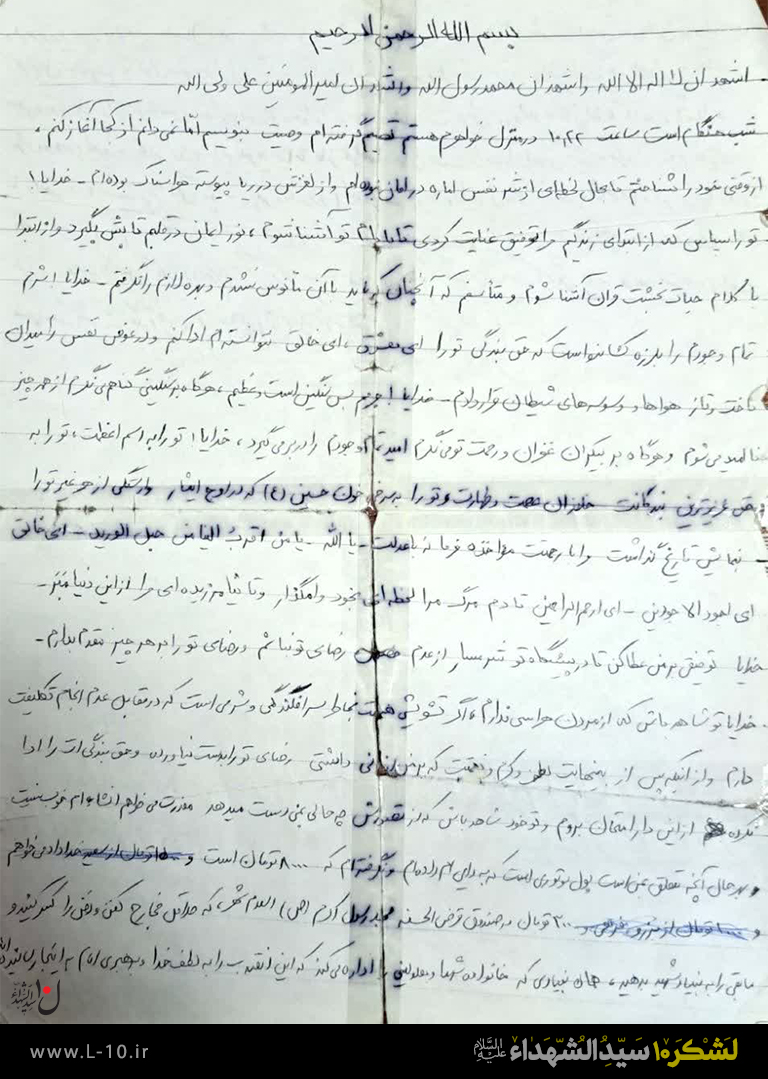 بسم الله الرحمن الرحیم
اشهد ان لا اله الا الله واشهد ان محمد رسول الله واشهد ان امیرالمومنین علی ولی الله
شب هنگام است ساعت ۱۰/۲۲ در منزل خواهرم هستم تصمیم گرفته‌ام وصیت بنویسم اما نمی‌دانم از کجا آغاز کنم،
از وقتی خود را شناختم تا بحال لحظه‌ای از شر نفس اماره در امان نبوده‌ام و از لغزش در ره یا پیوسته هراسناک بوده‌ام - خدایا!
تو را سپاس که از ابتدای زندگیم مرا توفیق عنایت کردی تا با نام تو آشنا شوم، نور ایمان در قلبم تابش بگیرد و از ابتدا
با کلام حیات بخشت قرآن آشنا شوم و متأسفم که آنچنان که باید با آن مأنوس نشدم و بهره لازم را نگرفتم - خدایا! شرم
تمام وجودم را بلرزه کشانده است که حق بندگی تو را ای معشوق، ای خالق نتوانسته‌ام ادا کنم و در عوض نفس را میدان
تاخت و تاز هواها و وسوسه‌های شیطان قرار دادم - خدایا! جرمم بس سنگین است و عظیم، هرگاه به سنگینی گناهم می‌نگرم از همه چیز
ناامید می‌شوم و هرگاه بر بیکران غفران و رحمت تو می‌نگرم امید تمام وجودم را در بر می‌گیرد، خدایا! تو را به اسم اعظمت، تو را به
حق عزیزترین بندگانت خاندان عصمت و طهارت و تو را به سرخی خون حسین (ع) که در اوج ایثار وارستگی از هر غیر تو را
بنمایش تاریخ گذاشت مرا با رحمتت مؤاخذه فرما نه با عدلت - یا الله - یا من اقرب الیّ من حبل الورید - ای خالق
ای اجود الاجودین - ای ارحم الراحمین تا دم مرگ مرا لحظه‌ای بخود وامگذار و تا نیامرزیده‌ای مرا از این دنیا مبر -
خدایا توفیقی بر من عطا کن تا در پیشگاه تو شرمسار از عدم رضای تو نباشم و رضای تو را بر هر چیز مقدم بدارم -
خدایا تو شاهد باش که از مردن هراسی ندارم، اگر تشویشی هست بخاطر سرافکندگی و شرمی است که در مقابل عدم انجام تکلیفت
دارم و از اینکه پس از بینهایت لطف و کرم و نعمت که بر من ارزانی داشتی رضای تو را بدست نیاورده و حق بندگی‌ات را ادا
نکرده از این دار امتحان بروم و تو خود شاهد باش که از تصورش چه حالی بمن دست میدهد
بهرحال آنچه متعلق بمن است پول موتوری است که به برادرم داده‌ام و نگرفته‌ام که ۸۰۰۰ تومان است و
و ۲۰۰ تومان در صندوق قرض الحسنه محمد رسول اکرم (ص) که حداقل مخارج کفن و دفن را کسر کنید و
مابقی را به بنیاد شهید بدهید، همان بنیادی که خانواده شهدا و معلولین را اداره می‌کند که این انقلاب را به لطف خدا و رهبری امام به اینجا رسانیده‌اند
www.L-10.ir
لشکر۱۰ سیّدالشهداء علیه‌السلام